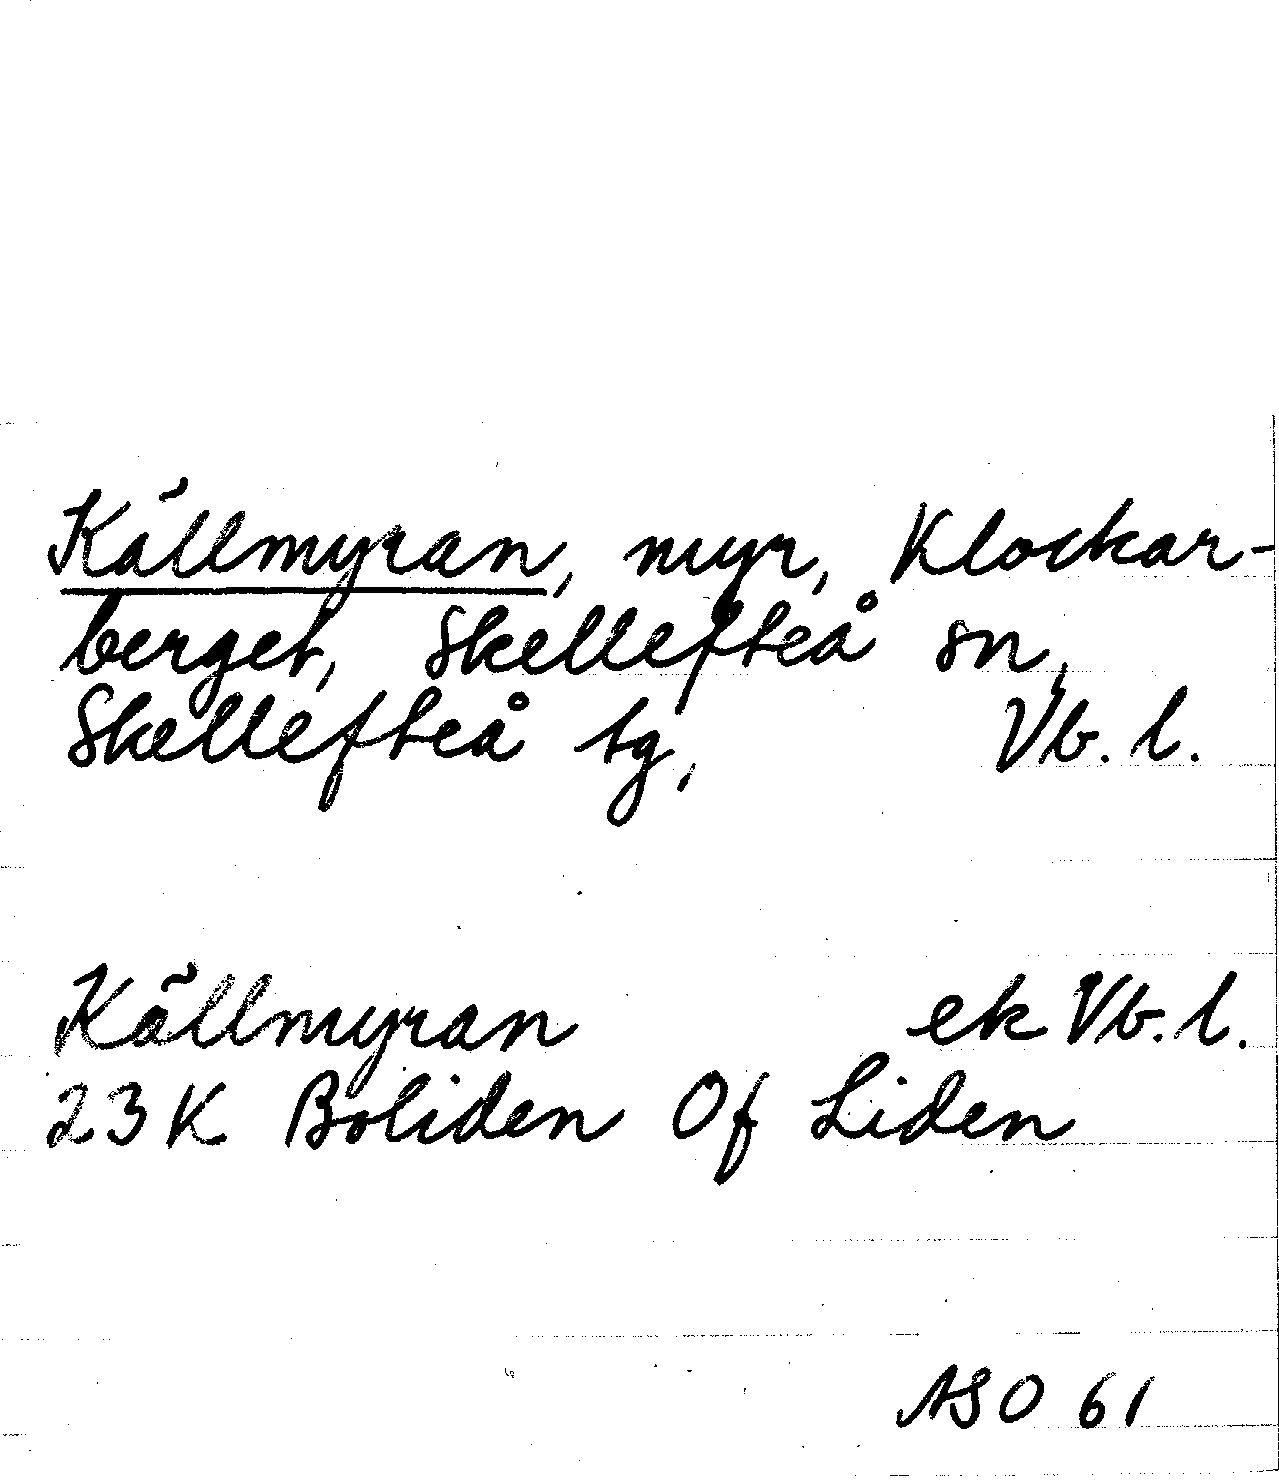 Källmyran, myr, Klockar-
berget, Skellefteå sn,
Skellefteå tg, Vb. l.
Källmyran ek Vb. l.
23K Boliden Of Liden
ASO 61